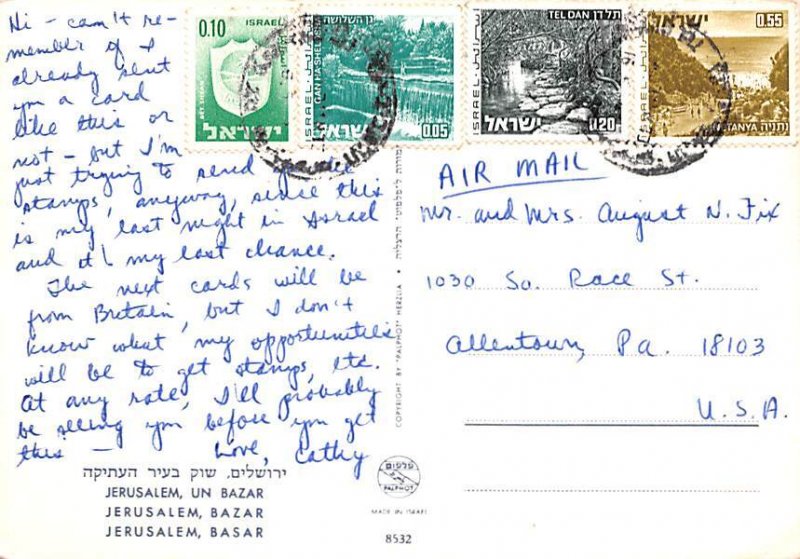 Hi - can't re-
member if I
already sent
you a card
like this or
not - but I'm
just trying to send you the
stamps, anyway, since this
is my last night in Israel
and it's my last chance.
The next cards will be
from Britain, but I don't
know what my opportunities
will be to get stamps, etc.
At any rate, I'll probably
be seeing you before you get
this -
Love, Cathy
ירושלים, שוק בעיר העתיקה
JERUSALEM, UN BAZAR
JERUSALEM, BAZAR
JERUSALEM, BASAR
0.10 ISRAEL
BET SHEAN
ישראל
גן השלושה
GAN HA-SHELOSHA
ISRAEL
ישראל 0.05
TEL DAN תל דן
ISRAEL
ישראל 0.20
ישראל 0.55
ISRAEL
NETANYA נתניה
COPYRIGHT BY "PALPHOT" HERZLIA
פלפוט
PALPHOT
MADE IN ISRAEL
8532
AIR MAIL
Mr. and Mrs. August N. Fix
1030 So. Race St.
Allentown, Pa. 18103
U.S.A.